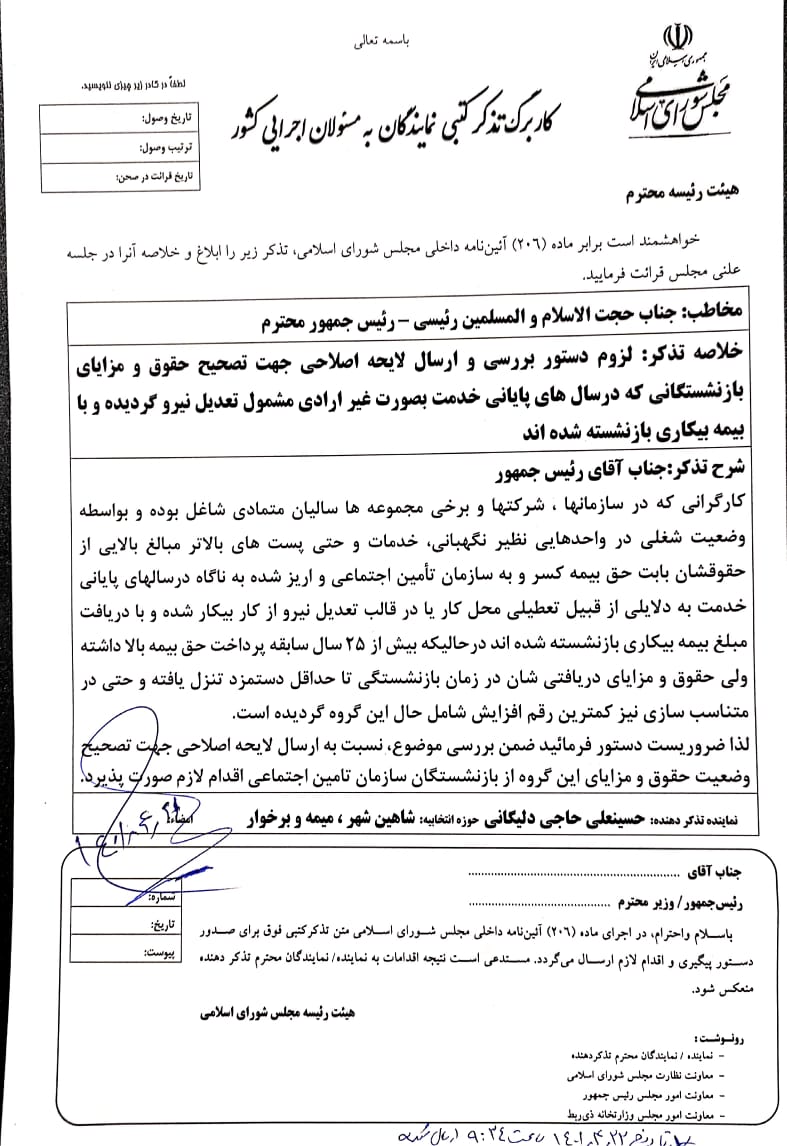 باسمه تعالی
جمهوری اسلامی ایران
مجلس شورای اسلامی
کاربرگ تذکر کتبی نمایندگان به مسئولان اجرایی کشور
لطفاً در کادر زیر چیزی ننویسید.
تاریخ وصول:
ترتیب وصول:
تاریخ قرائت در صحن:
هیئت رئیسه محترم
خواهشمند است برابر ماده (۲۰۶) آئین‌نامه داخلی مجلس شورای اسلامی، تذکر زیر را ابلاغ و خلاصه آنرا در جلسه
علنی مجلس قرائت فرمایید.
مخاطب: جناب حجت الاسلام و المسلمین رئیسی – رئیس جمهور محترم
خلاصه تذکر: لزوم دستور بررسی و ارسال لایحه اصلاحی جهت تصحیح حقوق و مزایای
بازنشستگانی که درسال های پایانی خدمت بصورت غیر ارادی مشمول تعدیل نیرو گردیده و با
بیمه بیکاری بازنشسته شده اند
شرح تذکر:جناب آقای رئیس جمهور
کارگرانی که در سازمانها ، شرکتها و برخی مجموعه ها سالیان متمادی شاغل بوده و بواسطه
وضعیت شغلی در واحدهایی نظیر نگهبانی، خدمات و حتی پست های بالاتر مبالغ بالایی از
حقوقشان بابت حق بیمه کسر و به سازمان تأمین اجتماعی و اریز شده به ناگاه درسالهای پایانی
خدمت به دلایلی از قبیل تعطیلی محل کار یا در قالب تعدیل نیرو از کار بیکار شده و با دریافت
مبلغ بیمه بیکاری بازنشسته شده اند درحالیکه بیش از ۲۵ سال سابقه پرداخت حق بیمه بالا داشته
ولی حقوق و مزایای دریافتی شان در زمان بازنشستگی تا حداقل دستمزد تنزل یافته و حتی در
متناسب سازی نیز کمترین رقم افزایش شامل حال این گروه گردیده است.
لذا ضروریست دستور فرمائید ضمن بررسی موضوع، نسبت به ارسال لایحه اصلاحی جهت تصحیح
وضعیت حقوق و مزایای این گروه از بازنشستگان سازمان تامین اجتماعی اقدام لازم صورت پذیرد.
نماینده تذکر دهنده: حسینعلی حاجی دلیگانی حوزه انتخابیه: شاهین شهر ، میمه و برخوار امضاء:
جناب آقای ........................................
رئیس‌جمهور/ وزیر محترم ........................................
باسلام واحترام، در اجرای ماده (۲۰۶) آئین‌نامه داخلی مجلس شورای اسلامی متن تذکرکتبی فوق برای صدور
دستور پیگیری و اقدام لازم ارسال می‌گردد. مستدعی است نتیجه اقدامات به نماینده/ نمایندگان محترم تذکر دهنده
منعکس شود.
شماره:
تاریخ:
پیوست:
هیئت رئیسه مجلس شورای اسلامی
رونوشت:
– نماینده / نمایندگان محترم تذکردهنده
– معاونت نظارت مجلس شورای اسلامی
– معاونت امور مجلس رئیس جمهور
– معاونت امور مجلس وزارتخانه ذی‌ربط
۱۴۰۱،۴،۲۲ ساعت ۹:۳۴ ارسال